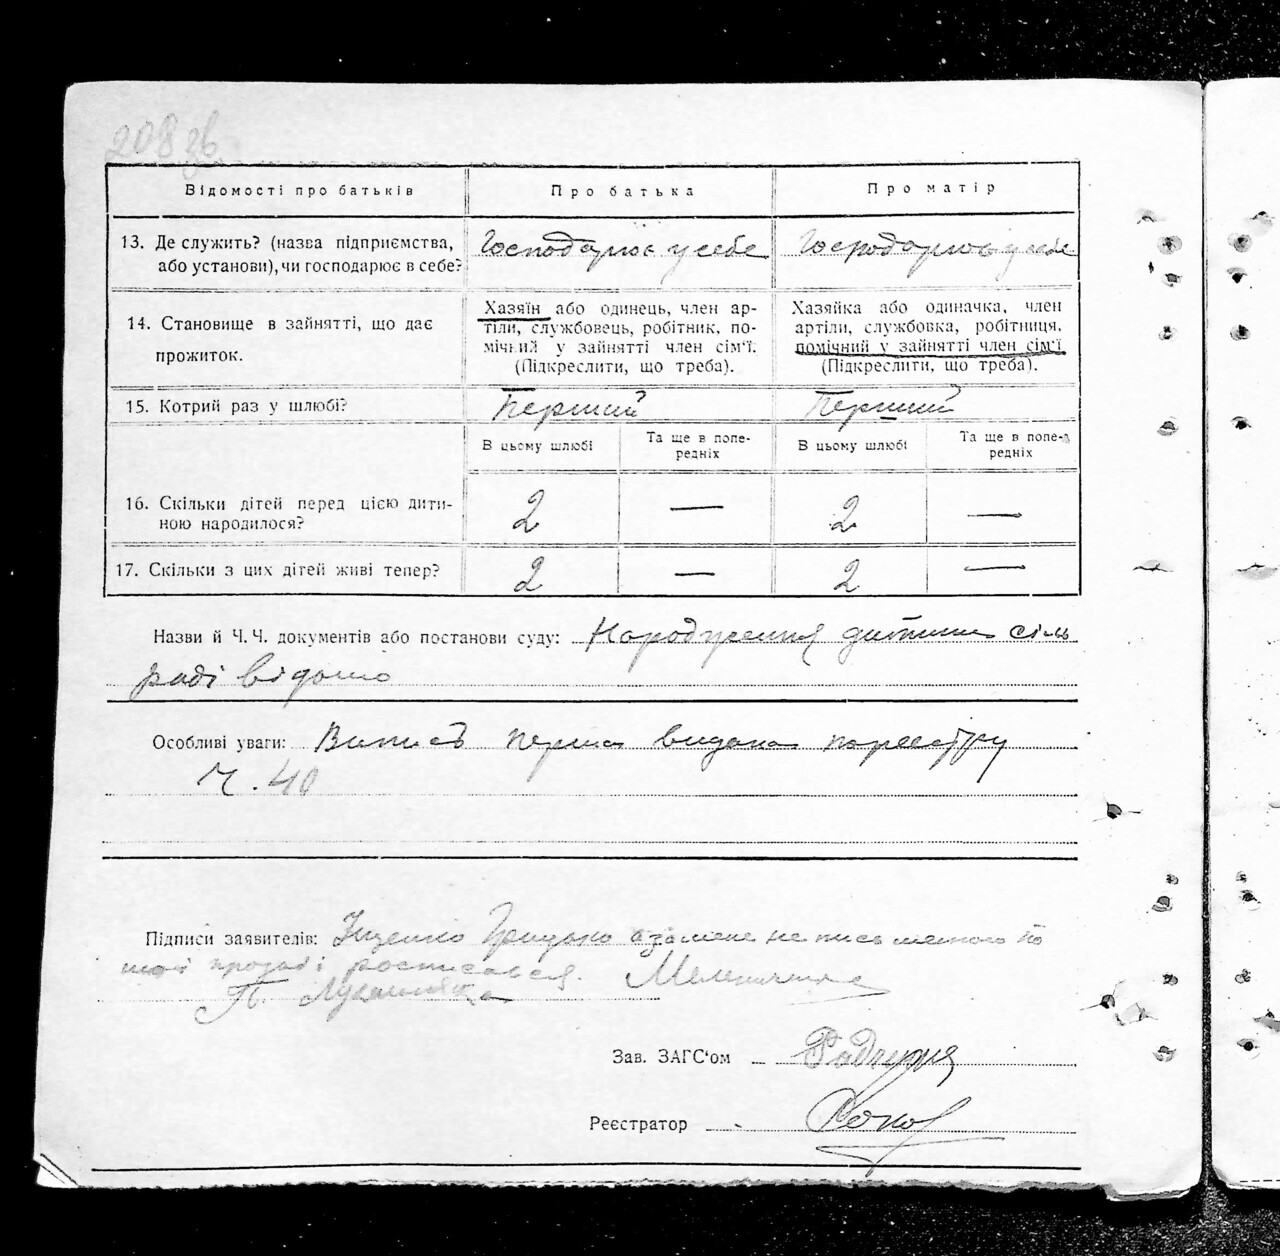 208 зв
Відомості про батьків
Про батька
Про матір
13. Де служить? (назва підприємства,
або установи), чи господарює в себе?
Господарює у себе
Господарює у себе
14. Становище в зайнятті, що дає
прожиток.
Хазяїн або одинець, член ар-
тіли, службовець, робітник, по-
мічний у зайнятті член сім'ї.
(Підкреслити, що треба).
Хазяйка або одиначка, член
артіли, службовка, робітниця,
помічний у зайнятті член сім'ї
(Підкреслити, що треба).
15. Котрий раз у шлюбі?
Перший
Перший
В цьому шлюбі
Та ще в попе-
редніх
В цьому шлюбі
Та ще в попе-
редніх
16. Скільки дітей перед цією дити-
ною народилося?
2
—
2
—
17. Скільки з цих дітей живі тепер?
2
—
2
—
Назви й Ч. Ч. документів або постанови суду: Народження дитини сіль
раді відомо
Особливі уваги: Випись перша видана пореєстру
Ч. 40
Підписи заявителів: Іщенко Грицько а замене не письменого по
його прозьбі росписався.
П.
Зав. ЗАГС'ом
Реєстратор